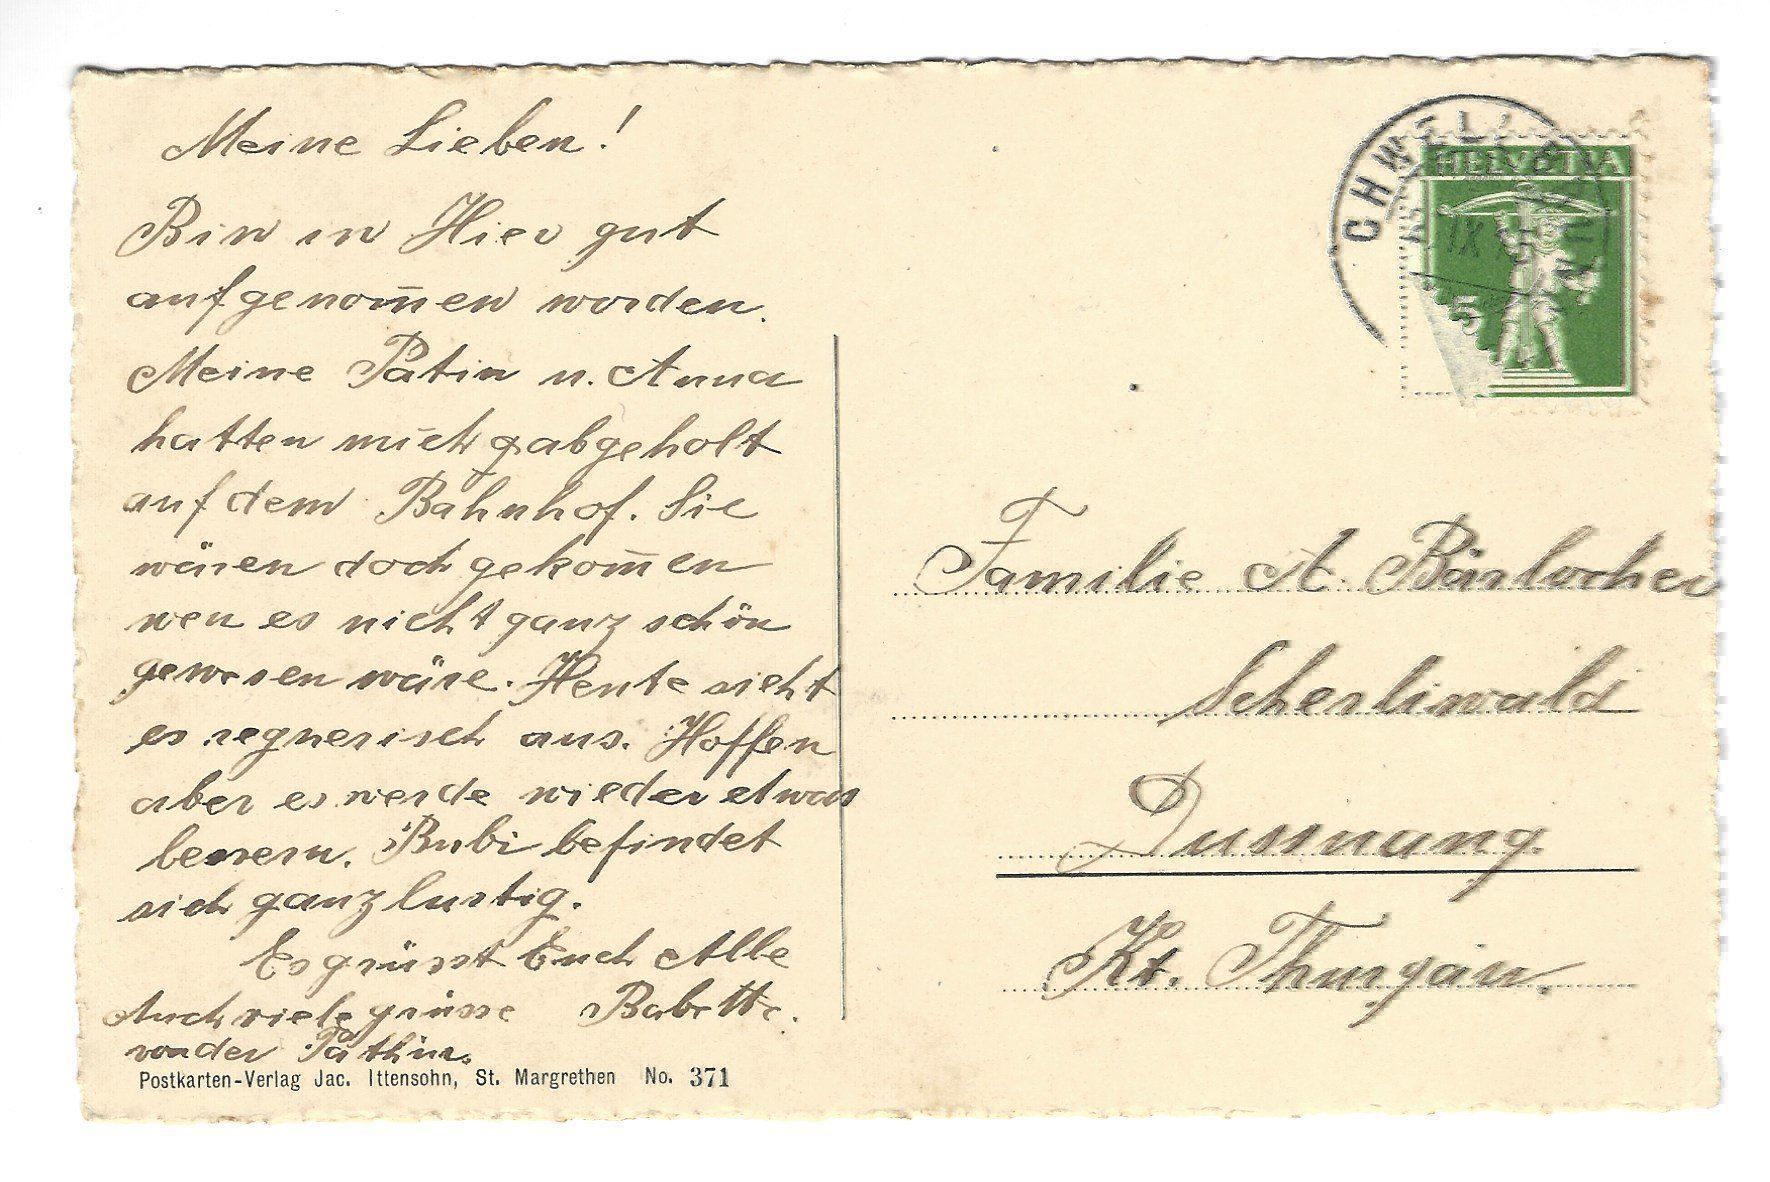 Meine Lieben!
Bin in Hier gut
aufgenom̅en worden.
Meine Patin u. Anna
hatten mich abgeholt
auf dem Bahnhof. Sie
wären doch gekom̅en
wen es nicht ganz schön
gewesen wäre. Heute sieht
es regnerisch aus. Hoffen
aber es werde wieder etwas
bessern. Bubi befindet
sich ganz lustig.
Es grüsst Euch Alle
Auch viele grüsse Babette.
von der Pathin.
Postkarten-Verlag Jac. Ittensohn, St. Margrethen No. 371
HELVETIA
5
IX
Familie A. Bärlocher
Scherliwald
Dussnang.
Kt. Thurgau.